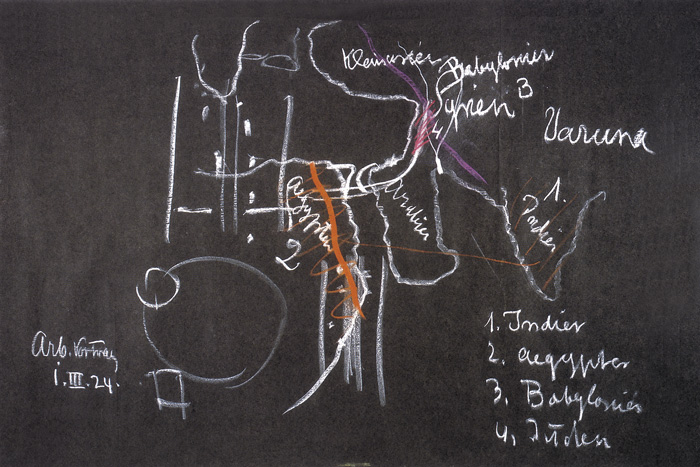 Kleinasien
Babylonier
3
Syrien
4
Varuna
1.
Indien
Aegypten
2
Arabien
1. Indier
2. Aegypter
3. Babylonier
4. Juden
Arb. Vortrag
1. III. 24.